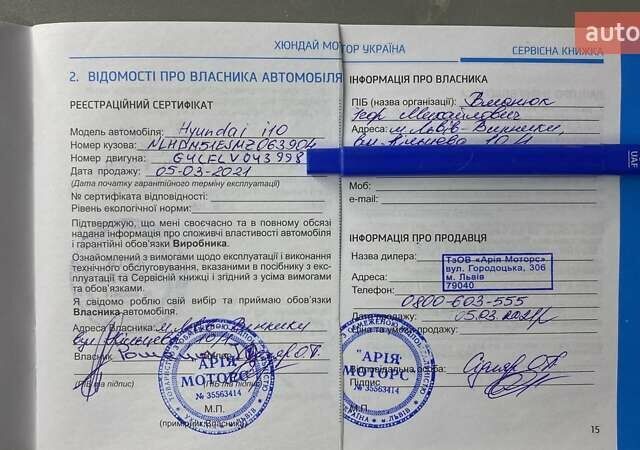 auto
ХЮНДАЙ МОТОР УКРАЇНА
СЕРВІСНА КНИЖКА
2. ВІДОМОСТІ ПРО ВЛАСНИКА АВТОМОБІЛЯ
РЕЄСТРАЦІЙНИЙ СЕРТИФІКАТ
Модель автомобіля: Hyundai i10
Номер кузова:
Номер двигуна:
Дата продажу: 05-03-2021
(Дата початку гарантійного терміну експлуатації)
№ сертифіката відповідності:
Рівень екологічної норми:
Підтверджую, що мені своєчасно та в повному обсязі
надана інформація про споживчі властивості автомобіля
і гарантійні обов'язки Виробника.
Ознайомлений з вимогами щодо експлуатації і виконання
технічного обслуговування, вказаними в посібнику з екс-
плуатації та Сервісній книжці і згідний з усіма вимогами
та обов'язками.
Я свідомо роблю свій вибір та приймаю обов'язки
Власника автомобіля.
Адреса Власника: м. Львів Винники
Власник
(ПІБ та підпис)
(ПІБ та підпис)
М.П.
"АРІЯ
МОТОРС"
№ 35563414
(примірник Власнику)
ІНФОРМАЦІЯ ПРО ВЛАСНИКА
ПІБ (назва організації):
Ігор Михайлович
Адреса: м. Львів-Винники,
10/4
UAF
Моб:
e-mail:
ІНФОРМАЦІЯ ПРО ПРОДАВЦЯ
Назва дилера:
ТзОВ «Арія Моторс»
вул. Городоцька, 306
м. Львів
79040
Адреса:
Телефон: 0800-603-555
Дата продажу: 05.03.2021р
Ціна та умови продажу:
Відповідальна особа:
Підпис
"АРІЯ
МОТОРС
№ 35563414
М.П.
15